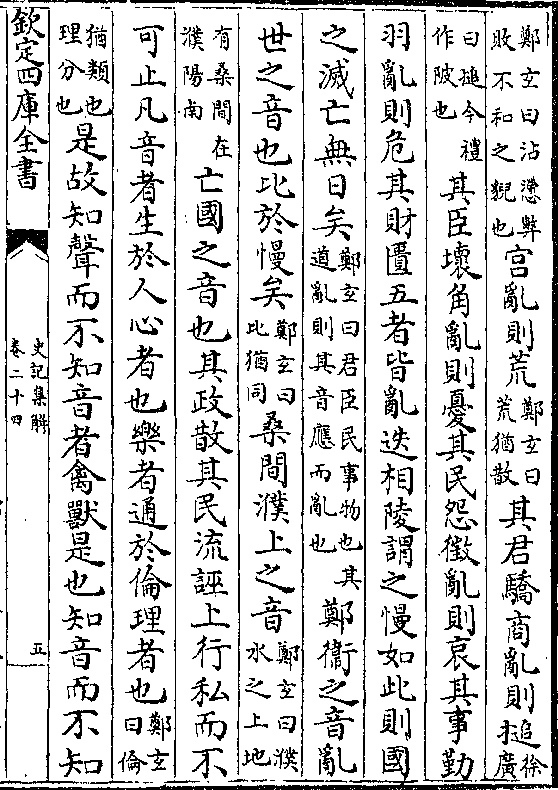 鄭玄曰沾懘弊敗不和之貎也宫亂則荒鄭玄曰荒猶散其君驕商亂則搥徐廣
曰搥今禮作陂也其臣壞角亂則憂其民怨徵亂則哀其事勤
羽亂則危其財匱五者皆亂迭相陵謂之慢如此則國
之滅亡無日矣鄭玄曰君臣民事物也其道亂則其音應而亂也鄭衞之音亂
世之音也比於慢矣鄭玄曰比猶同桑間濮上之音鄭玄曰濮水之上地
有桑間在濮陽南亡國之音也其政散其民流誣上行私而不
可止凡音者生於人心者也樂者通於倫理者也鄭玄曰倫
猶類也理分也是故知聲而不知音者禽獸是也知音而不知
欽定四庫全書
史記集解
卷二十四
五